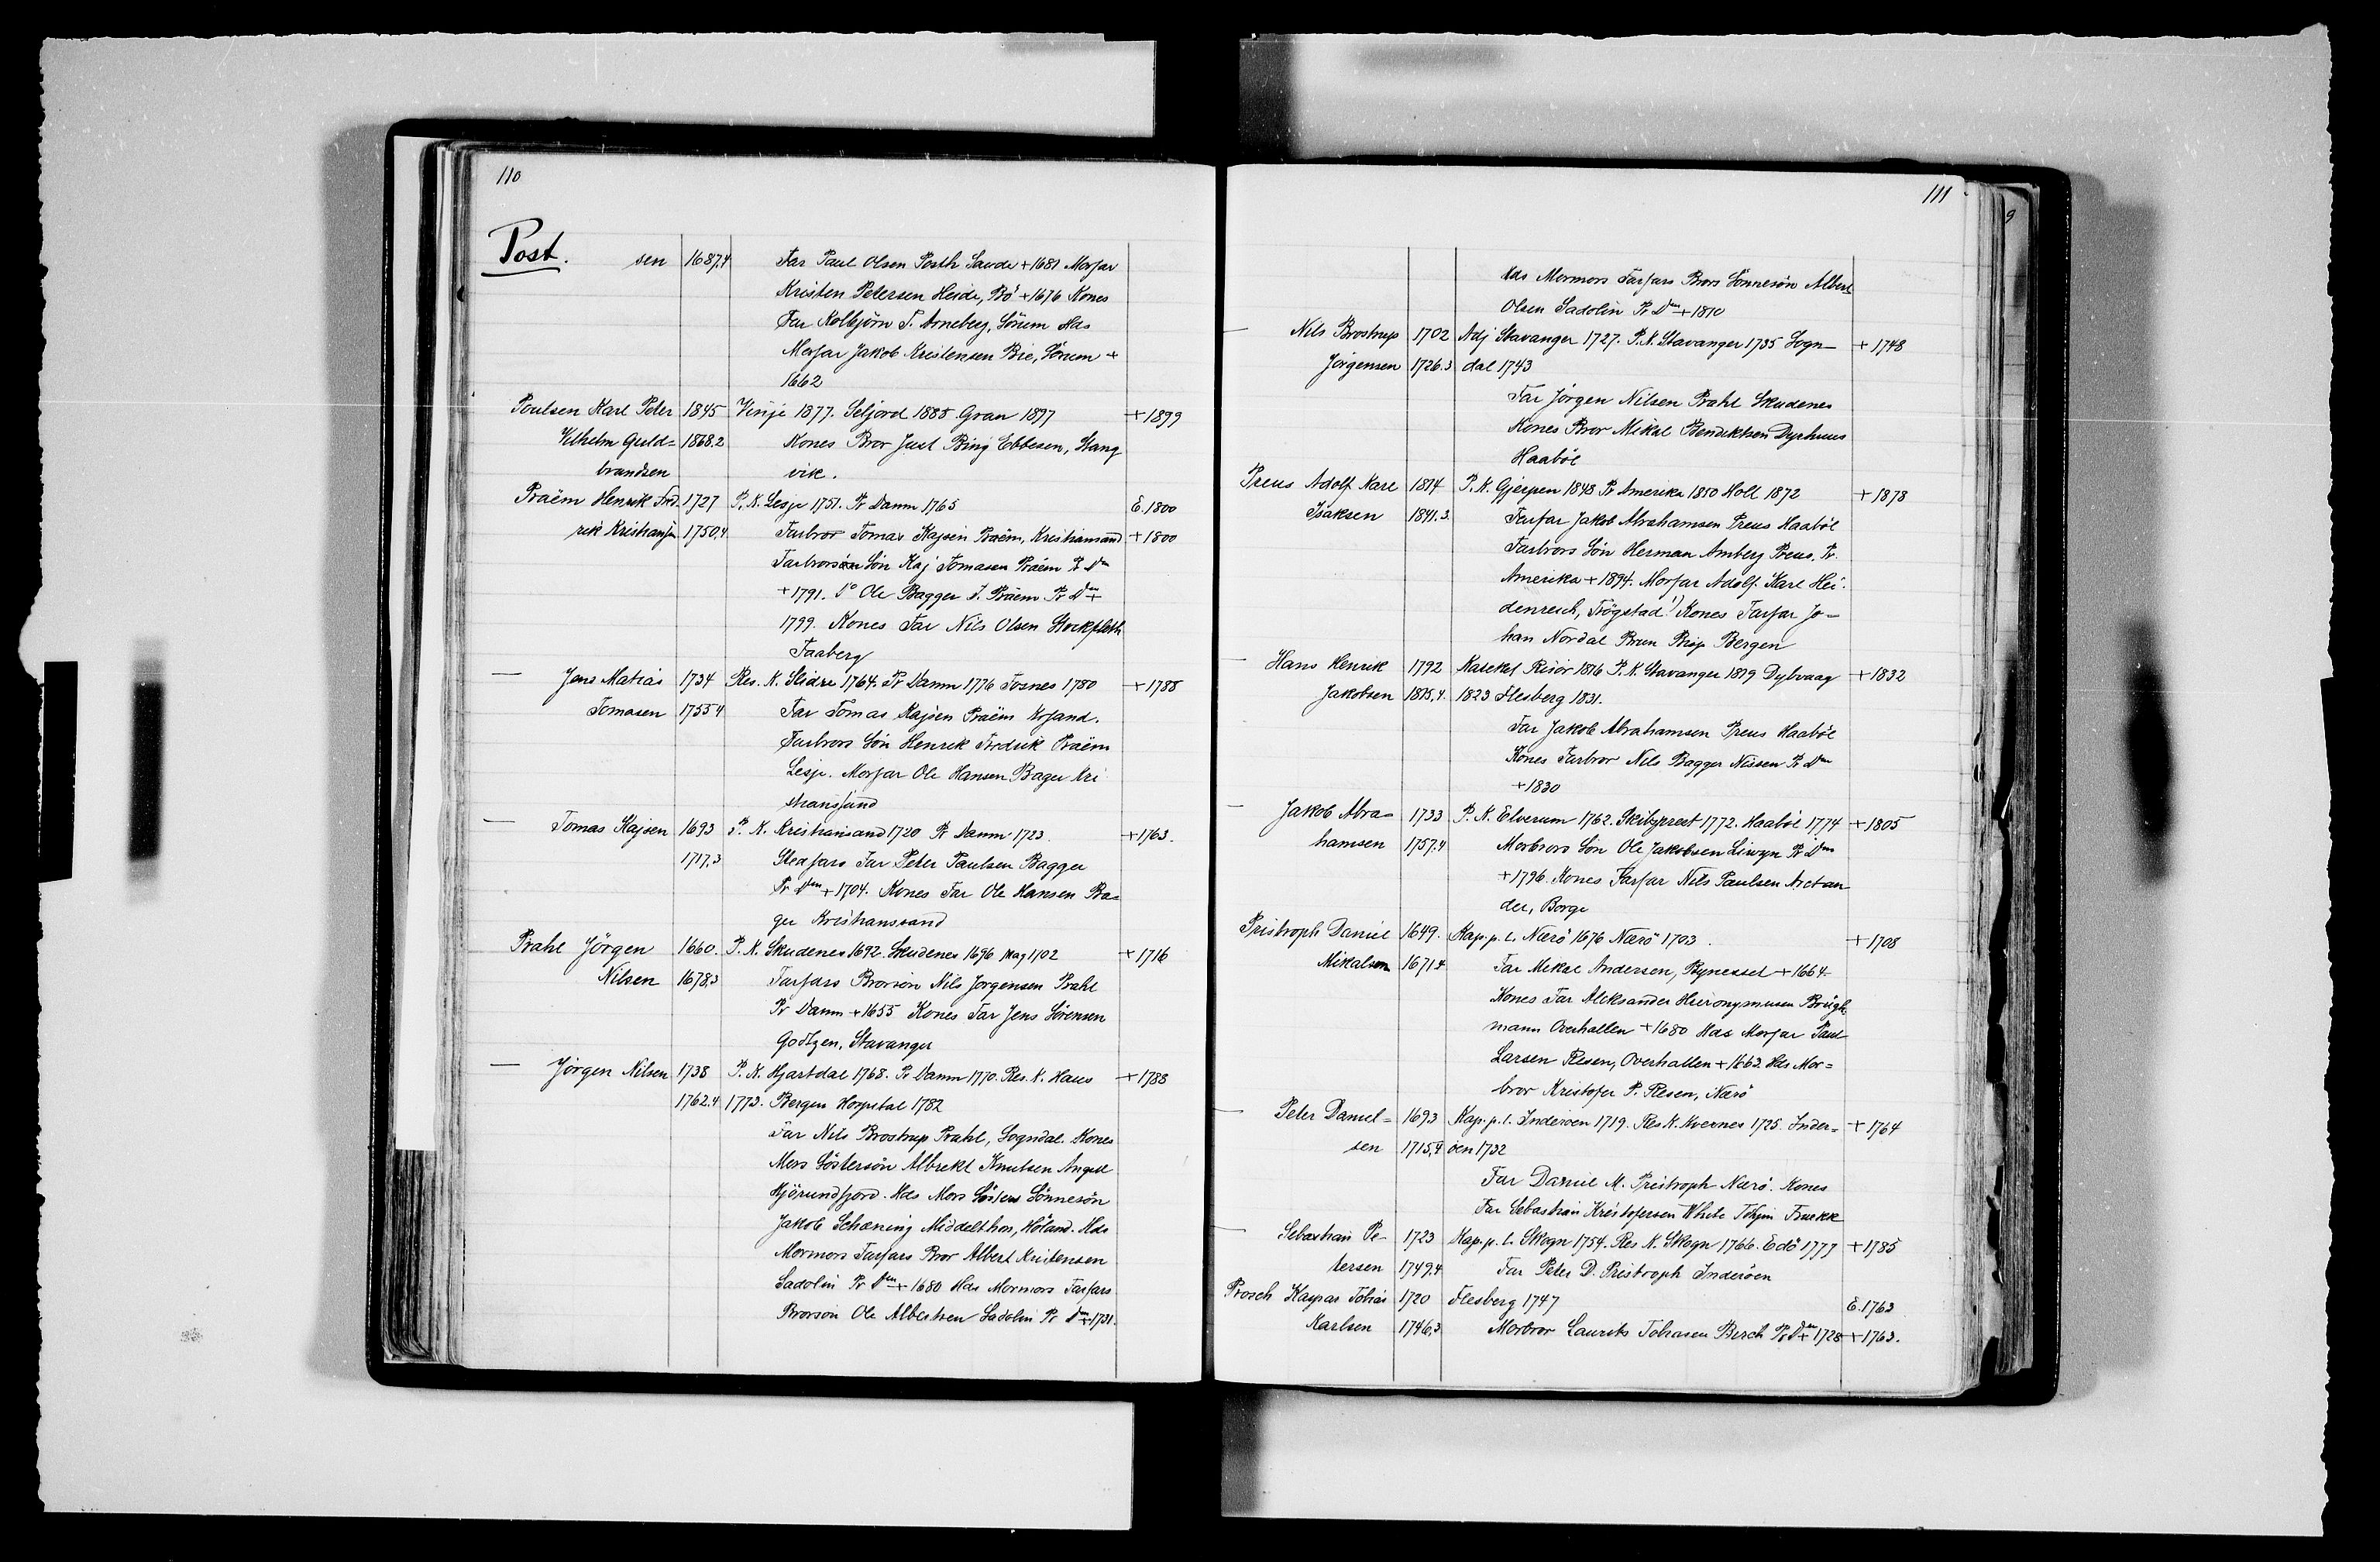 110
Post. sen 1687.4 Far Paul Olsen Posth Saude + 1681 Morfar
Kristen Petersen Heide, Bö + 1676 Kones
Far Kolbjörn T. Arneberg, Sörum Hds
Morfar Jakob Kristensen Bie, Sörum +
1662
Poulsen Karl Peter 1845 Vinje 1877. Seljord 1888. Gran 1897 + 1899
Vilhelm Guld= 1868.2 Kones Bror Just Bing Ebbesen, Hang
brandsen vik.
Praëm Henrik Fred. 1727 P. K. Lesje 1751. Pr Danm 1765 E. 1800
rik Kristiansen 1750.4 Farbror Tomas Kajsen Praëm, Kristiansand + 1800
Farbrors Sön Kaj Tomasen Praëm Pr Dm
+ 1791. Do Ole Bagger T. Praëm Pr Dm +
1799. Kones Far Nils Olsen Stockfleth
Faaberg
— Jens Matias 1734 Res. K. Slidre 1764. Pr Danm 1776 Fosnes 1780 + 1788
Tomasen 1755 4 Far Tomas Kajsen Praëm Krsand.
Farbrors Sön Henrik Fredrik Praëm
Lesje. Morfar Ole Hansen Bager Kri
stiansand
— Tomas Kajsen 1693 P. K. Kristiansand 1720 Pr Danm 1723 + 1763.
1717.3 Stedfars Far Peter Paulsen Bagger
Pr Dm + 1704. Kones Far Ole Hansen Ba=
ger Kristianssand
Prahl Jörgen 1660. P. K. Skudenes 1692. Skudenes 1696 Mag 1702 + 1716
Nilsen 1678.3 Farfars Brorsön Nils Jörgensen Prahl
Pr Danm + 1655 Kones Far Jens Sörensen
Godtzen, Stavanger
— Jörgen Nilsen 1738 P. K. Hjartdal 1768. Pr Danm 1770. Res. K. Haus + 1788
1762.4 1773. Bergen Hospital 1782
Far Nils Brostrup Prahl, Sogndal. Kones
Mors Söstersön Albrekt Knutsen Angell
Hjörundfjord. Hds Mors Sösters Sönnesön
Jakob Schæning Middelthon, Höland. Hds
Mormors Farfars Bror Albert Kristensen
Sadolin Pr Dm + 1680 Hds Mormors Farfars
Brorsön Ole Albertsen Sadolin Pr Dm + 1731.
111
9
Hds Mormors Farfars Brors Sönnesön Albert
Olsen Sadolin Pr Dm + 1810
— Nils Brostrup 1702 Adj Stavanger 1727. P. K. Stavanger 1735 Sogn— + 1748
Jörgensen 1726.3 dal 1743
Far Jörgen Nilsen Prahl Skudenes
Kones Bror Mikal Bendiktsen Dyrhuus
Haaböl
Preus Adolf Karl 1814 P. K. Gjerpen 1848 Pr Amerika 1850 Holt 1872 + 1878
Isaksen 1841.3. Farfar Jakob Abrahamsen Preus Haaböl
Farbrors Sön Herman Amberg Preus, Pr.
Amerika + 1894. Morfar Adolf Karl Hei.
denreich, Trögstad.1) Kones Farfar Jo=
han Nordal Brun Bisp Bergen
— Hans Henrik 1792 Katekel Risör 1816 P. K. Stavanger 1819 Dybvaag + 1832
Jakobsen 1815.4. 1823 Flesberg 1831.
Far Jakob Abrahamsen Preus Haaböl
Kones Farbror Nils Bagger Nissen Pr Dm
+ 1830
— Jakob Abra= 1733 P. K. Elverum 1762. Skibsprest 1772. Haaböl 1774 + 1805
hamsen 1757.4 Morbrors Sön Ole Jakobsen Liwyn Pr Dm
+ 1796. Kones Farfar Nils Paulsen Arctan
der, Borge
Pristroph Daniel 1649. Kap. p. l. Nærö 1676 Nærö 1703. + 1708
Mikalsen 1671.4 Far Mikal Andersen, Bynesset + 1664
Kones Far Aleksander Hieronymusen Brügh
mann Overhallen + 1680 Hds Morfar Paul
Larsen Resen, Overhallen + 1663. Hds Mor=
bror Kristofer P. Resen, Nærö
— Peter Daniel= 1693 Kap. p. l. Inderöen 1719. Res K. Kvernes 1725. Inder= + 1764
sen 1715.4 öen 1732
Far Daniel M. Pristroph Nærö. Kones
Far Sebastian Kristofersen White
— Sebastian Pe- 1723 Kap. p. l. Skogn 1754. Res K. Skogn 1766. Edö 1777 + 1785
tersen 1749.4 Far Peter D. Pristroph Inderöen
Prosch Kaspar Tobias 1720 Flesberg 1747 E. 1763
Karlsen 1746.3 Morbror Laurits Tobiasen Berch Pr Dm + 1728 + 1763.